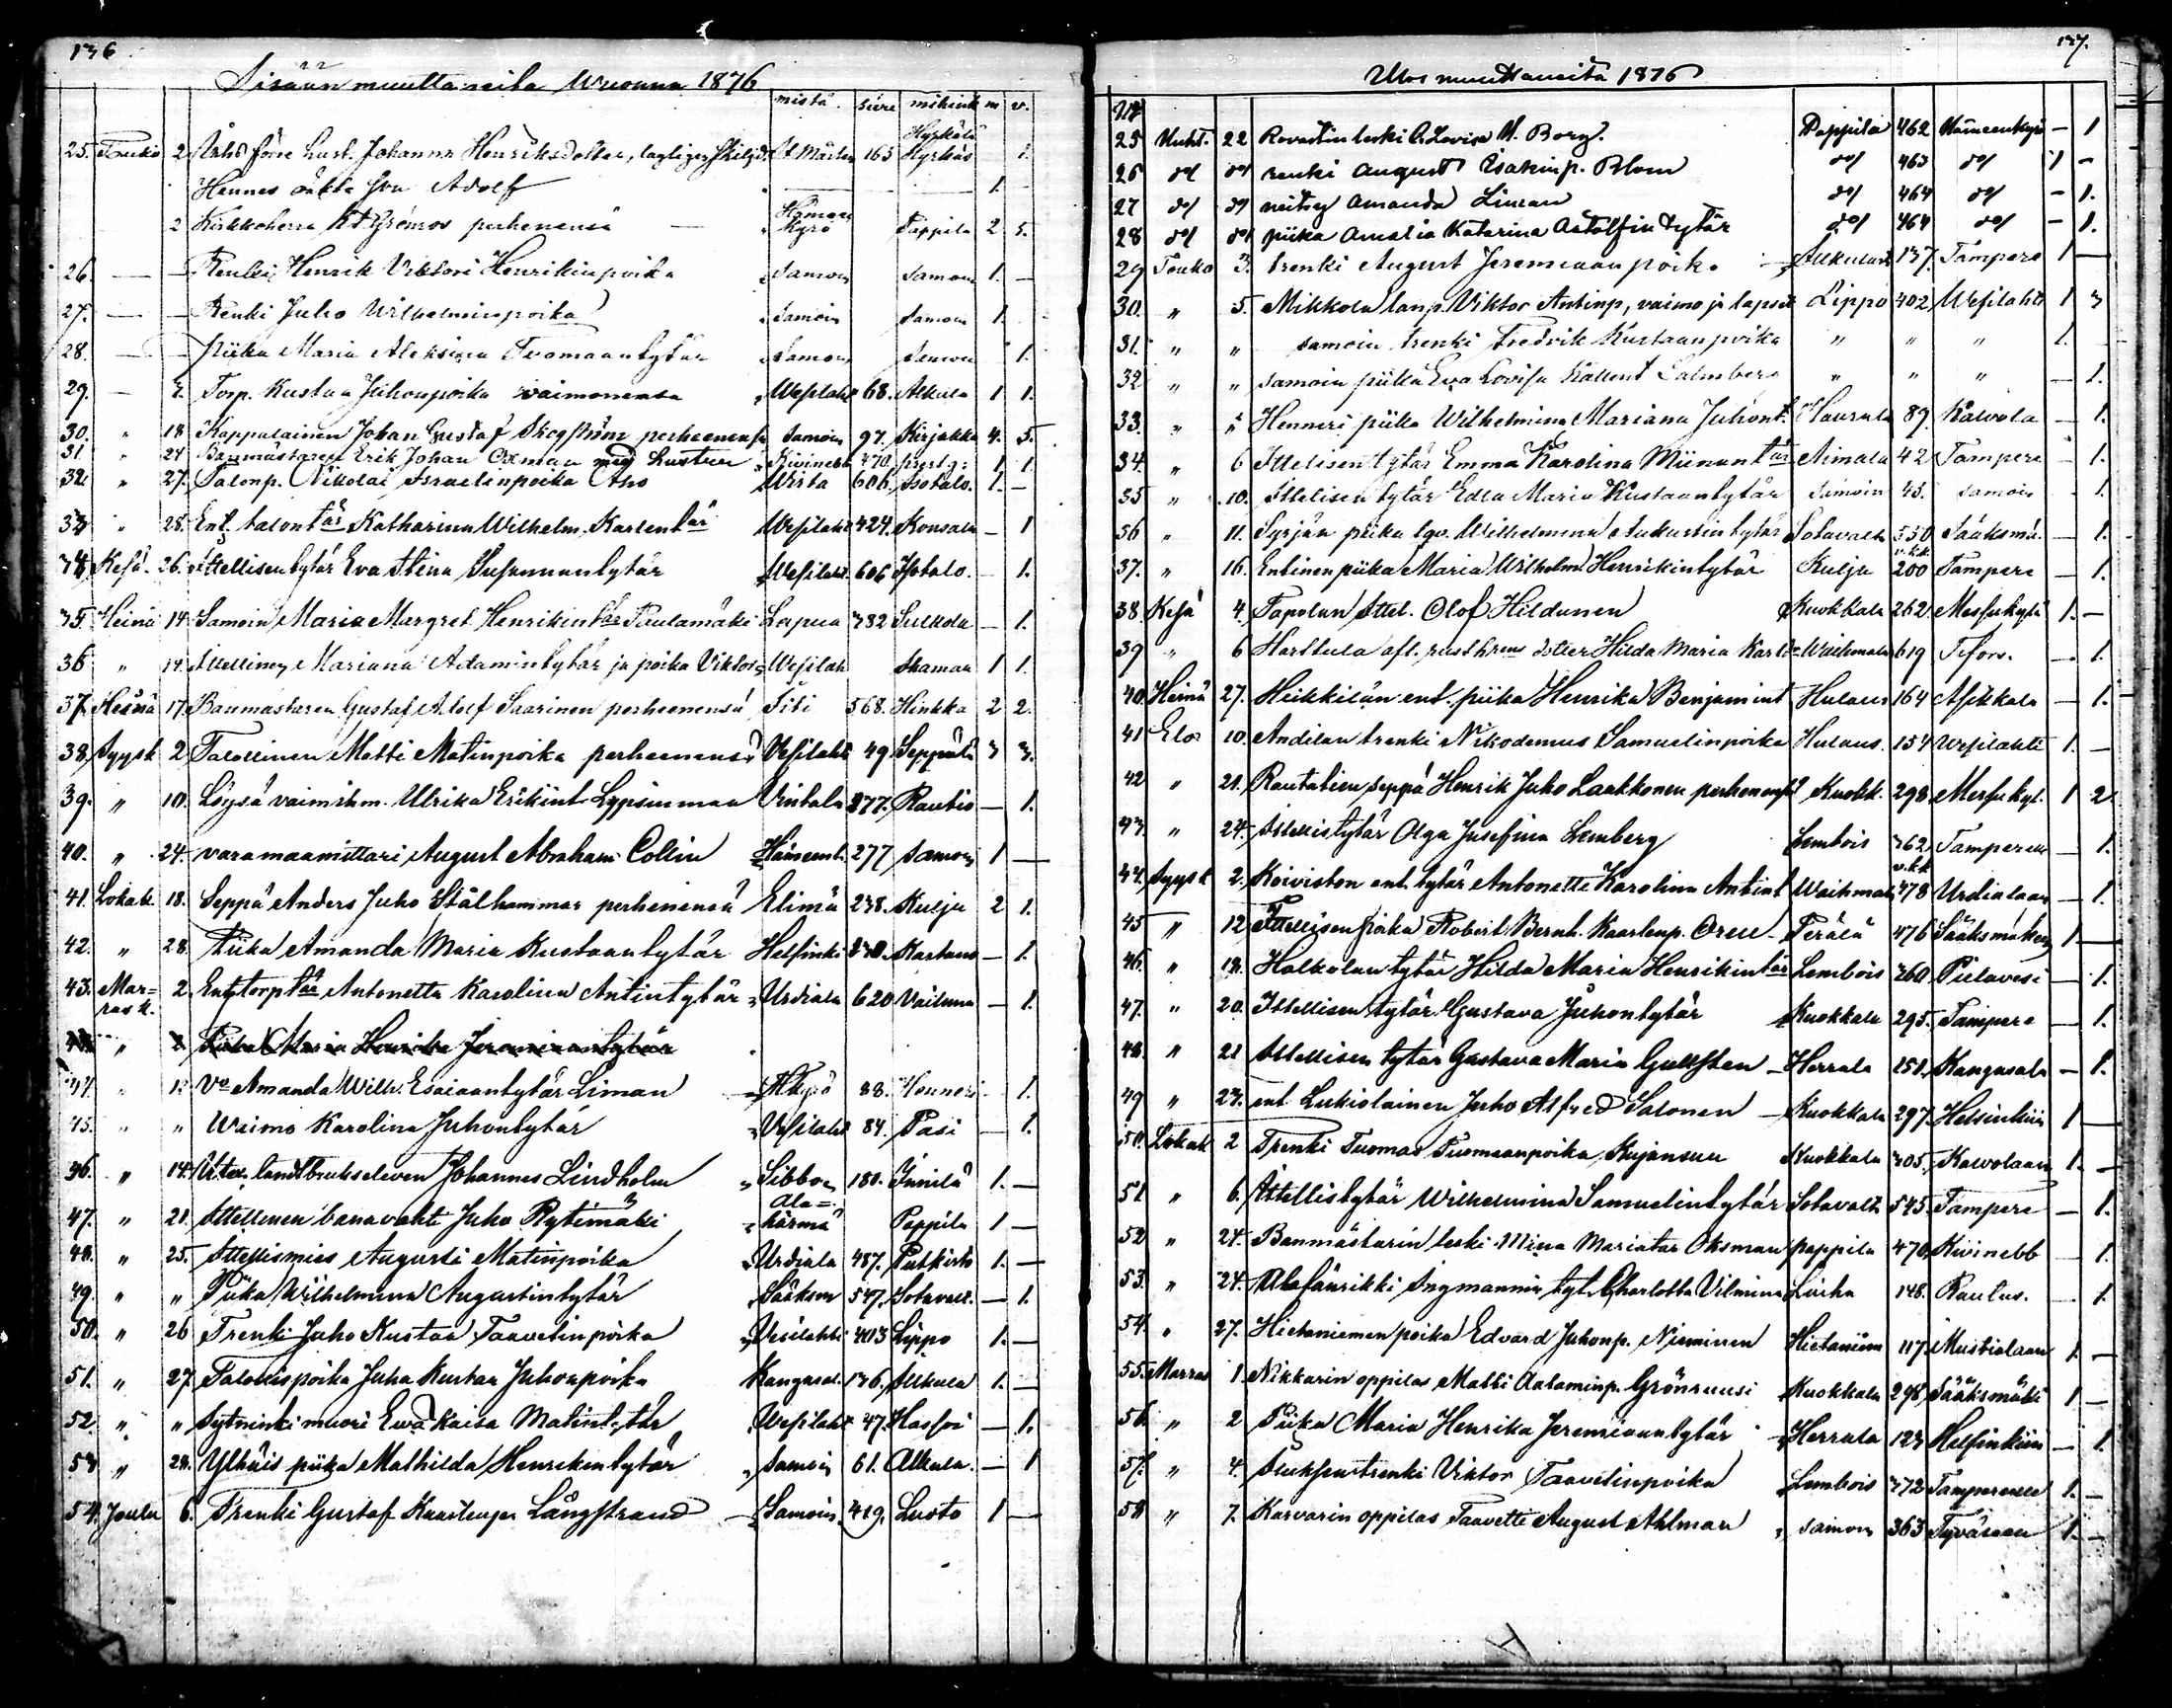 136
Sisään muuttaneita Wuonna 1876
mistä. sivu mihink m v.
Hyrkölä
25. Touko 2 förre hust. Johanna Henriksdotter, lagligen skiljd. St Mårten 165 1.
Hennes äkta son Adolf 1.
2 Kirkkoherra Grönroos perheinensä Hämeenkyrö Pappila 2 5.
26. — Renki Henrik Viktori Henrikinpoika Samoin Samoin 1. —
27. — Renki Juho Wilhelminpoika Samoin Samoin 1.
28. — Piika Maria Aleksina Tuomaantytär Samoin Samoin 1.
29. — 3. Torp. Kustaa Juhonpoika vaimonensa Wesilaht 68. Alkula 1 1.
30. " 18 Kappalainen Johan Gustaf perheenensä Samoin 97. Kirjakka 4. 5.
31 " 24 Banmästaren Erik Johan Oxman med hustru Kivinebb 470. 1 1.
32. " 27. Talonp. Nikolai Israelinpoika Aho Wirta 606. Isotalo. 1. —
33 " 28. Ent. talontär Katharina Wilhelm. Karlentär Wesilaht 424. Konsala — 1
34. Kesä. 26. Ittellisentytär Eva Stina Susannantytär Wesilaht. 606 Isotalo. — 1.
35. Heinä 14. Samoin Maria Margret Henrikintär Paulamäki Lapua 382 Sulkola — 1.
36 " 14. Ittellinen Mariana Adamintytär ja poika Viktor Wesilah 1 1.
37. Heinä 17. Banmästaren Gustaf Adolf Saarinen perheenensä Siti 568. Hinkka 2 2.
38. Syysk 2 Talollinen Matti Matinpoika perheenensä Vesilaht 49. Seppälä 3 3.
39. " 10. Löysä vaimihm. Ulrika Erikint. Lypsinmaa Virtala 277. Rautio — 1.
40. " 24. varamaamittari August Abraham Collin Hämeenli 277 samoin 1 —
41. Lokak. 18. Seppä Anders Juho Stålhammar perhenensä Elimä 238. Kulju 2 1.
42. " 28. Piika Amanda Maria Kustaantytär Helsinki 230. Kartano — 1.
43. Marrask. 2. Ent. torptär Antonetta Karolina Antintytär Urdiala 620 — 1.
" 2 Piika Maria Henrika Jeremiaantytär
44. " Vo Amanda Wilh. Esaiaantytär Liman Hkyrö 88. Henneri — 1.
45. " " Waimo Karolina Juhontytär Vesilaht 84. Pasi — 1.
46. " 14. Utex. landtbrukseleven Johannes Lindholm Sibbo 180. Innilä 1. —
47. " 21. Ittellinen banavahti Juho Rytimäki Ala=härmä Pappila 1 —
48. " 25. Ittellismies Augusti Matinpoika Urdiala 487. Putkisto 1. —
49. " " Piika Wilhelmina Augustintytär Sääksm 547. Sotavalt. — 1.
50. " 26 Trenki Juho Kustaa Taavetinpoika Vesilahti 403 Lippo 1. —
51. " 27. Talollispoika Juha Kustaa Juhonpoika Kangasal. 136. Alkula 1. —
52. " " Sytninki muori Ewa Kaisa Matintytär Wesilaht 47. Hassoi — 1.
53 " 28. Ylhäis piika Mathilda Henrikentytär Samoin 61. Alkula. — 1
54. Joulu 6. Trenki Gustaf Kaarlenpo Långstrand Samoin. 419. Luoto 1 —
137.
Ulos muuttaneita 1876
25 Huht. 22 Rovastin leski C. Lovisa M. Borg. Pappila 462 Hämeenkyrö — 1
26 do do renki August Isakinp. Blom do 463 do 1 —
27 do do neitsy Amanda Liman do 464 do — 1.
28 do do piika Amalia Katarina Astolfin tytär do 464 do — 1.
29 Touko 3. trenki August Jeremiaan poika Alkulast 137. Tampere 1 —
30. " 5. Mikkola lanp. Viktor Antinp, vaimo ja lapset Lippo 402 Wesilahti 1 3
31. " " samoin trenki Fredrik Kustaanpoika " " " 1.
32 " " samoin piika Eva Lovisa Kallent Salmberg " " " — 1.
33. " " Henneri piika Wilhelmina Mariana Juhont. Haurala 89 Kalvola — 1.
34. " 6 Ittelisentytär Emma Karolina Miinantär Aimala 42 Tampere — 1.
35 " 10. Ittelisen tytär Edla Maria Kustaantytär samoin 43. samoin — 1.
36 " 11. Syrjän piika Wilhelmina Aukustin tytär Sotavalt 550 Sääksmä. — 1.
v.kk
37. " 16. Entinen piika Maria Wilhelm. Henrikintytär Kulju 200 Tampere — 1.
38 Kesä 4. Tapolan Ittel. Olof Hildunen Kuokkala 262. Messukylä 1. —
39 " 6 Harttula aft. rusthrens dotter Hilda Maria Karl Waihmala 619 — 1.
40. Heinä 27. Heikkilän ent. piika Henrika Benjamint Hulaus 164 Asikkala — 1.
41 Elo 10. Andilan trenki Nikodemus Samuelinpoika Hulaus. 154 Wesilahti 1. —
42 " 21. Rautatien seppä Henrik Juho Laakkonen perhenensä Kuokk. 298. Messukyl. 1 2.
43. " 24. Ittellistytär Olga Josefina Lemberg Lembois 362 Tampereelle — 1.
v.kk
44. Syysk 2. Koiviston ent. tytär Antonette Karolina Antint Waihmala 478 Urdialaan — 1.
45 " 12 Ittellisen poika Robert Bernh. Kaarlenp. Oren Perälä 476 Sääksmäkeen 1. —
46. " 18. Halkolan tytär Hilda Maria Henrikintär Lembois 360. Pielavesi — 1.
47. " 20. Ittellisen tytär Gustava Juhontytär Kuokkala 295. Tampere — 1.
48. " 21 Ittellisen tytär Gustava Maria Gullsten Herrala 151. Kangasala — 1.
49 " 23. ent Lukiolainen Juho Alfred Salonen Kuokkala 297. Helsinkiin 1 —
50. Lokak 2 Trenki Tuomas Tuomaanpoika Kujansuu Kuokkala 305. Kalvolaan 1. —
51 " 6. Ittellistytär Wilhelmina Samuelintytär Sotavalt 545. Tampere — 1.
52 " 24. Banmästarin leski Mina Mariatar Oksman pappila 470. Kivinebb — 1.
53. " 24. Alafänrikki Ingmannin tyt. Charlotta Vilmina Liuha 148. Rautus. — 1.
54. " 27. Hietaniemen poika Edvard Juhonp. Nieminen Hietaniem 117. Mustialaan 1. —
55. Marras 1. Nikkarin oppilas Matti Aataminp. Grönruusi Kuokkala 296 Sääksmäki 1 —
56. " 2 Piika Maria Henrika Jeremiaantytär Herrala 123 Helsinkiin — 1.
57. " 4. trenki Viktor Taavetinpoika Lembois 372 Tampereelle 1. —
58 " 7. Karvarin oppilas Taavetti August Ahlman samoin 363 Tyvääseen 1. —